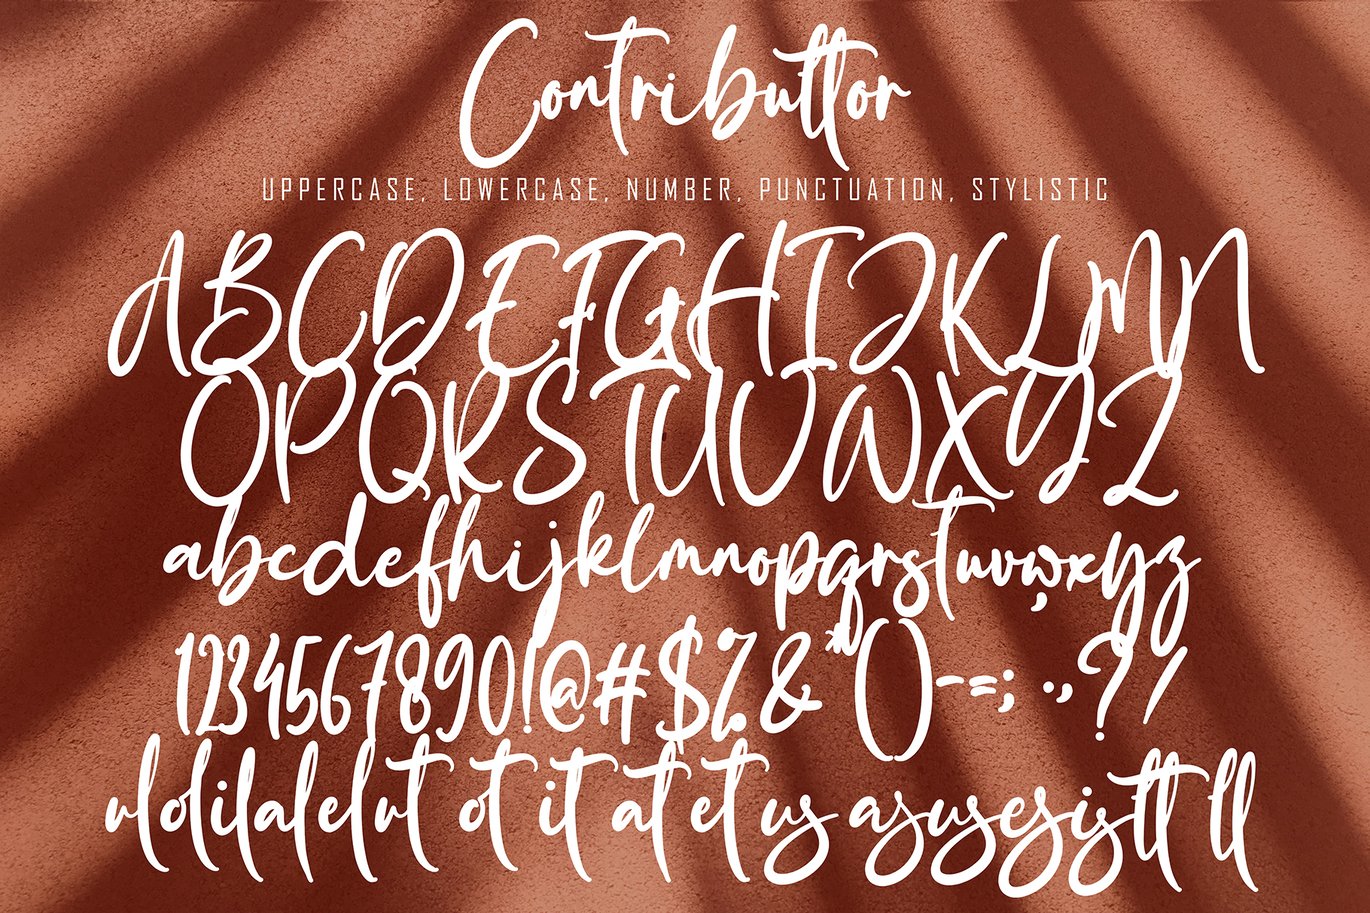 Contributtor
UPPERCASE, LOWERCASE, NUMBER, PUNCTUATION, STYLISTIC
ABCDEFGHIJKLMN
OPQRSTUVWXYZ
abcdefghijklmnopqrstuvwxyz
1234567890!@#$%&*()-=;.,?/
ulolilalelut ot it at et us asusesistt ll